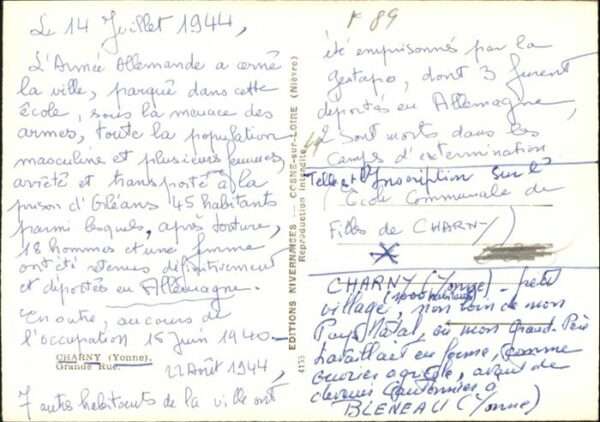 Le 14 Juillet 1944,
L'Armée Allemande a cerné
la ville, parqué dans cette
école, sous la menace des
armes, toute la population
masculine et plusieurs femmes,
arrêté et transporté à la
prison d'Orléans 45 habitants
parmi lesquels, après torture,
18 hommes et une femme
ont été retenus définitivement
et déportés en Allemagne.
En outre, au cours de
l'occupation 15 Juin 1940-
22 Août 1944,
7 autres habitants de la ville ont
CHARNY (Yonne).
Grande Rue.
4153
EDITIONS NIVERNAISES — COSNE-sur-LOIRE (Nièvre)
Reproduction interdite
F 89
été emprisonnés par la
gestapo, dont 3 furent
déportés en Allemagne,
2 sont morts dans les
camps d'extermination
Telle est l'Inscription sur l'
Ecole Communale de
Filles de CHARNY)
CHARNY (Yonne) - petit
village, (1000 habitants) non loin de mon
Pays Natal, où mon Grand-Père
travaillait en ferme, comme
ouvrier agricole, avant de
devenir Cantonnier à
BLENEAU (Yonne)